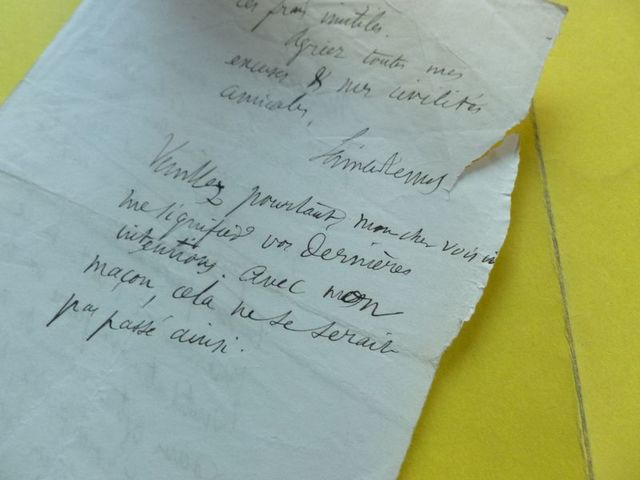 ces frais inutiles.
Agréer toutes mes
excuses & mes civilités
amicales.
Veuillez pourtant, mon cher voisin
me signifier vos dernières
intentions. avec mon
maçon, cela ne se serait
pas passé ainsi.